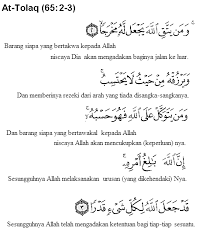 At-Tolaq (65: 2-3)
وَمَن يَتَّقِ ٱللَّهَ يَجْعَل لَّهُۥ مَخْرَجًا ٢
Barang siapa yang bertakwa kepada Allah
niscaya Dia akan mengadakan baginya jalan ke luar.
وَيَرْزُقْهُ مِنْ حَيْثُ لَا يَحْتَسِبُ
Dan memberinya rezeki dari arah yang tiada disangka-sangkanya.
وَمَن يَتَوَكَّلْ عَلَى ٱللَّهِ فَهُوَ حَسْبُهُۥ
Dan barang siapa yang bertawakal kepada Allah
niscaya Allah akan mencukupkan (keperluan) nya.
إِنَّ ٱللَّهَ بَٰلِغُ أَمْرِهِۦ
Sesungguhnya Allah melaksanakan urusan (yang dikehendaki) Nya.
قَدْ جَعَلَ ٱللَّهُ لِكُلِّ شَىْءٍ قَدْرًا ٣
Sesungguhnya Allah telah mengadakan ketentuan bagi tiap-tiap sesuatu.